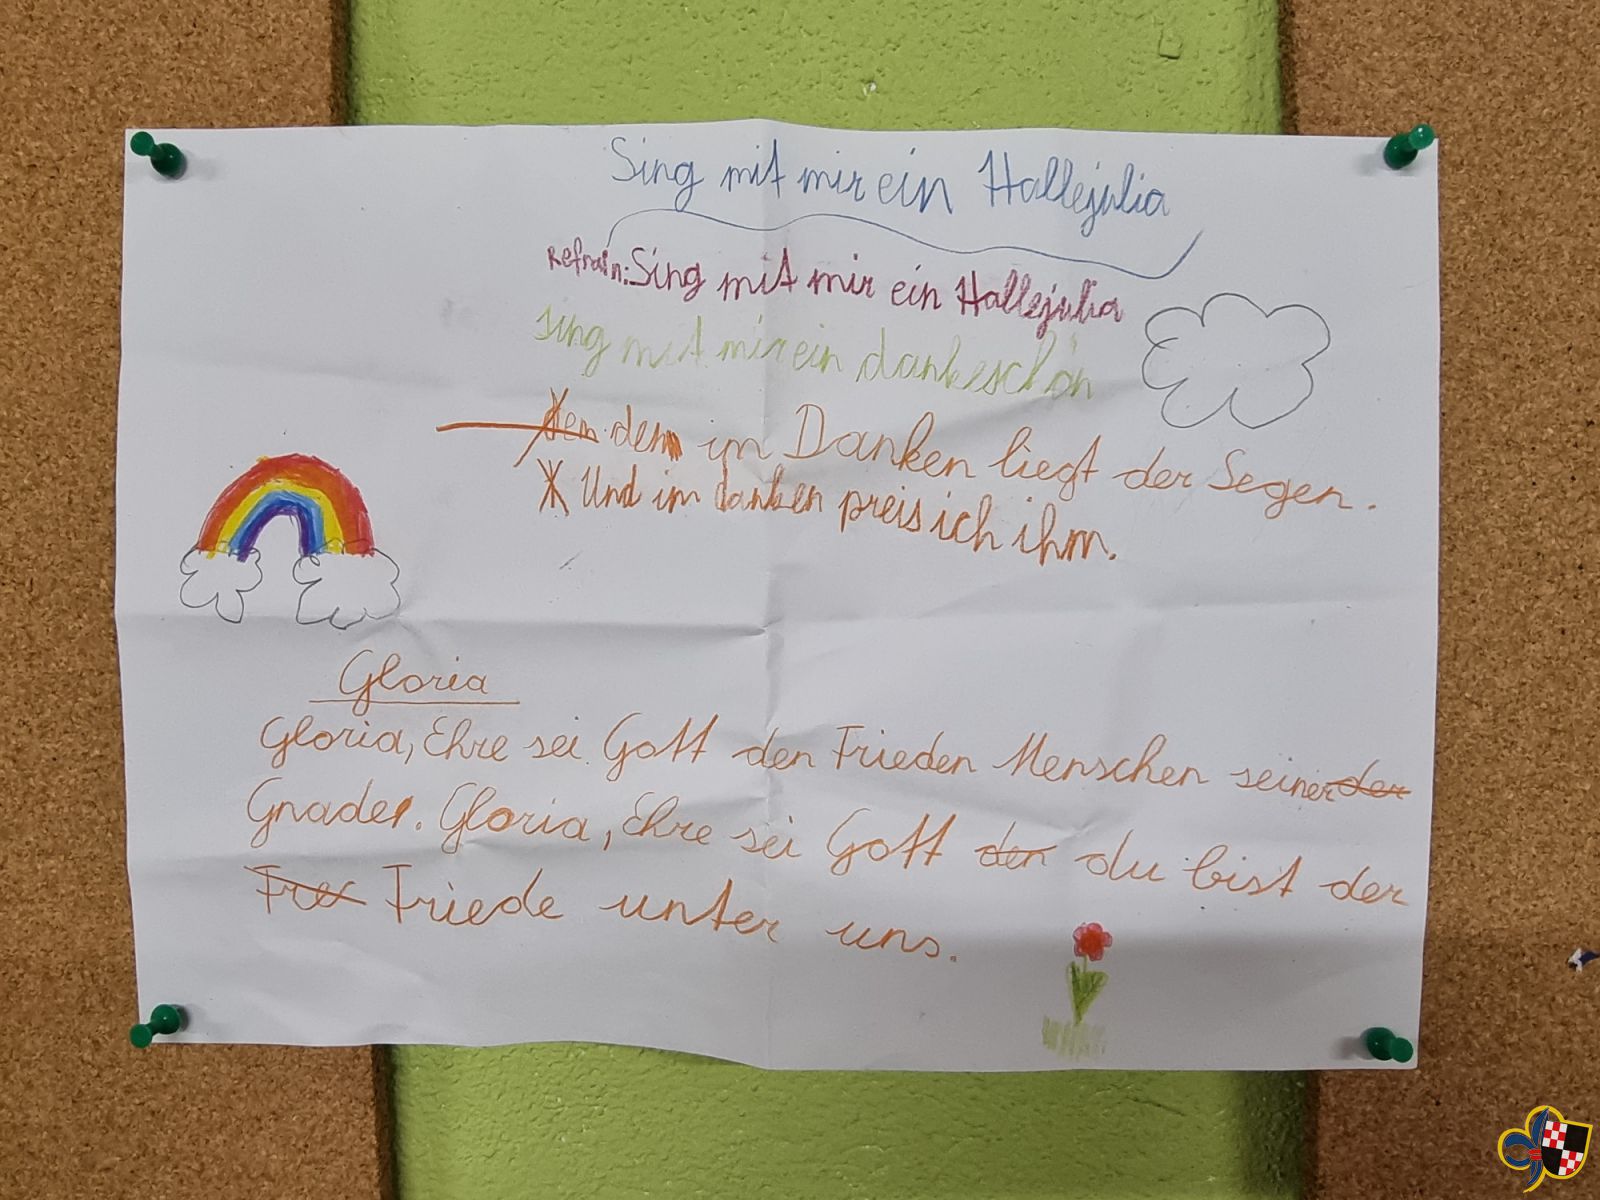 Sing mit mir ein Hallejulia
Refrain: Sing mit mir ein Hallejulia
sing mit mir ein dankeschön
den denn im Danken liegt der Segen.
Und im danken preis ich ihm.
Gloria
Gloria, Ehre sei Gott den Frieden Menschen seiner der
Gnade. Gloria, Ehre sei Gott den du bist der
Fre Friede unter uns.